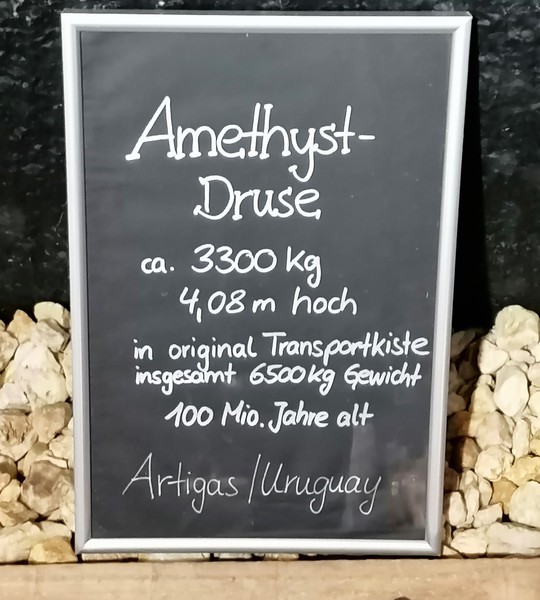 Amethyst-
Druse
ca. 3300 kg
4,08 m hoch
in original Transportkiste
insgesamt 6500 kg Gewicht
100 Mio. Jahre alt
Artigas / Uruguay